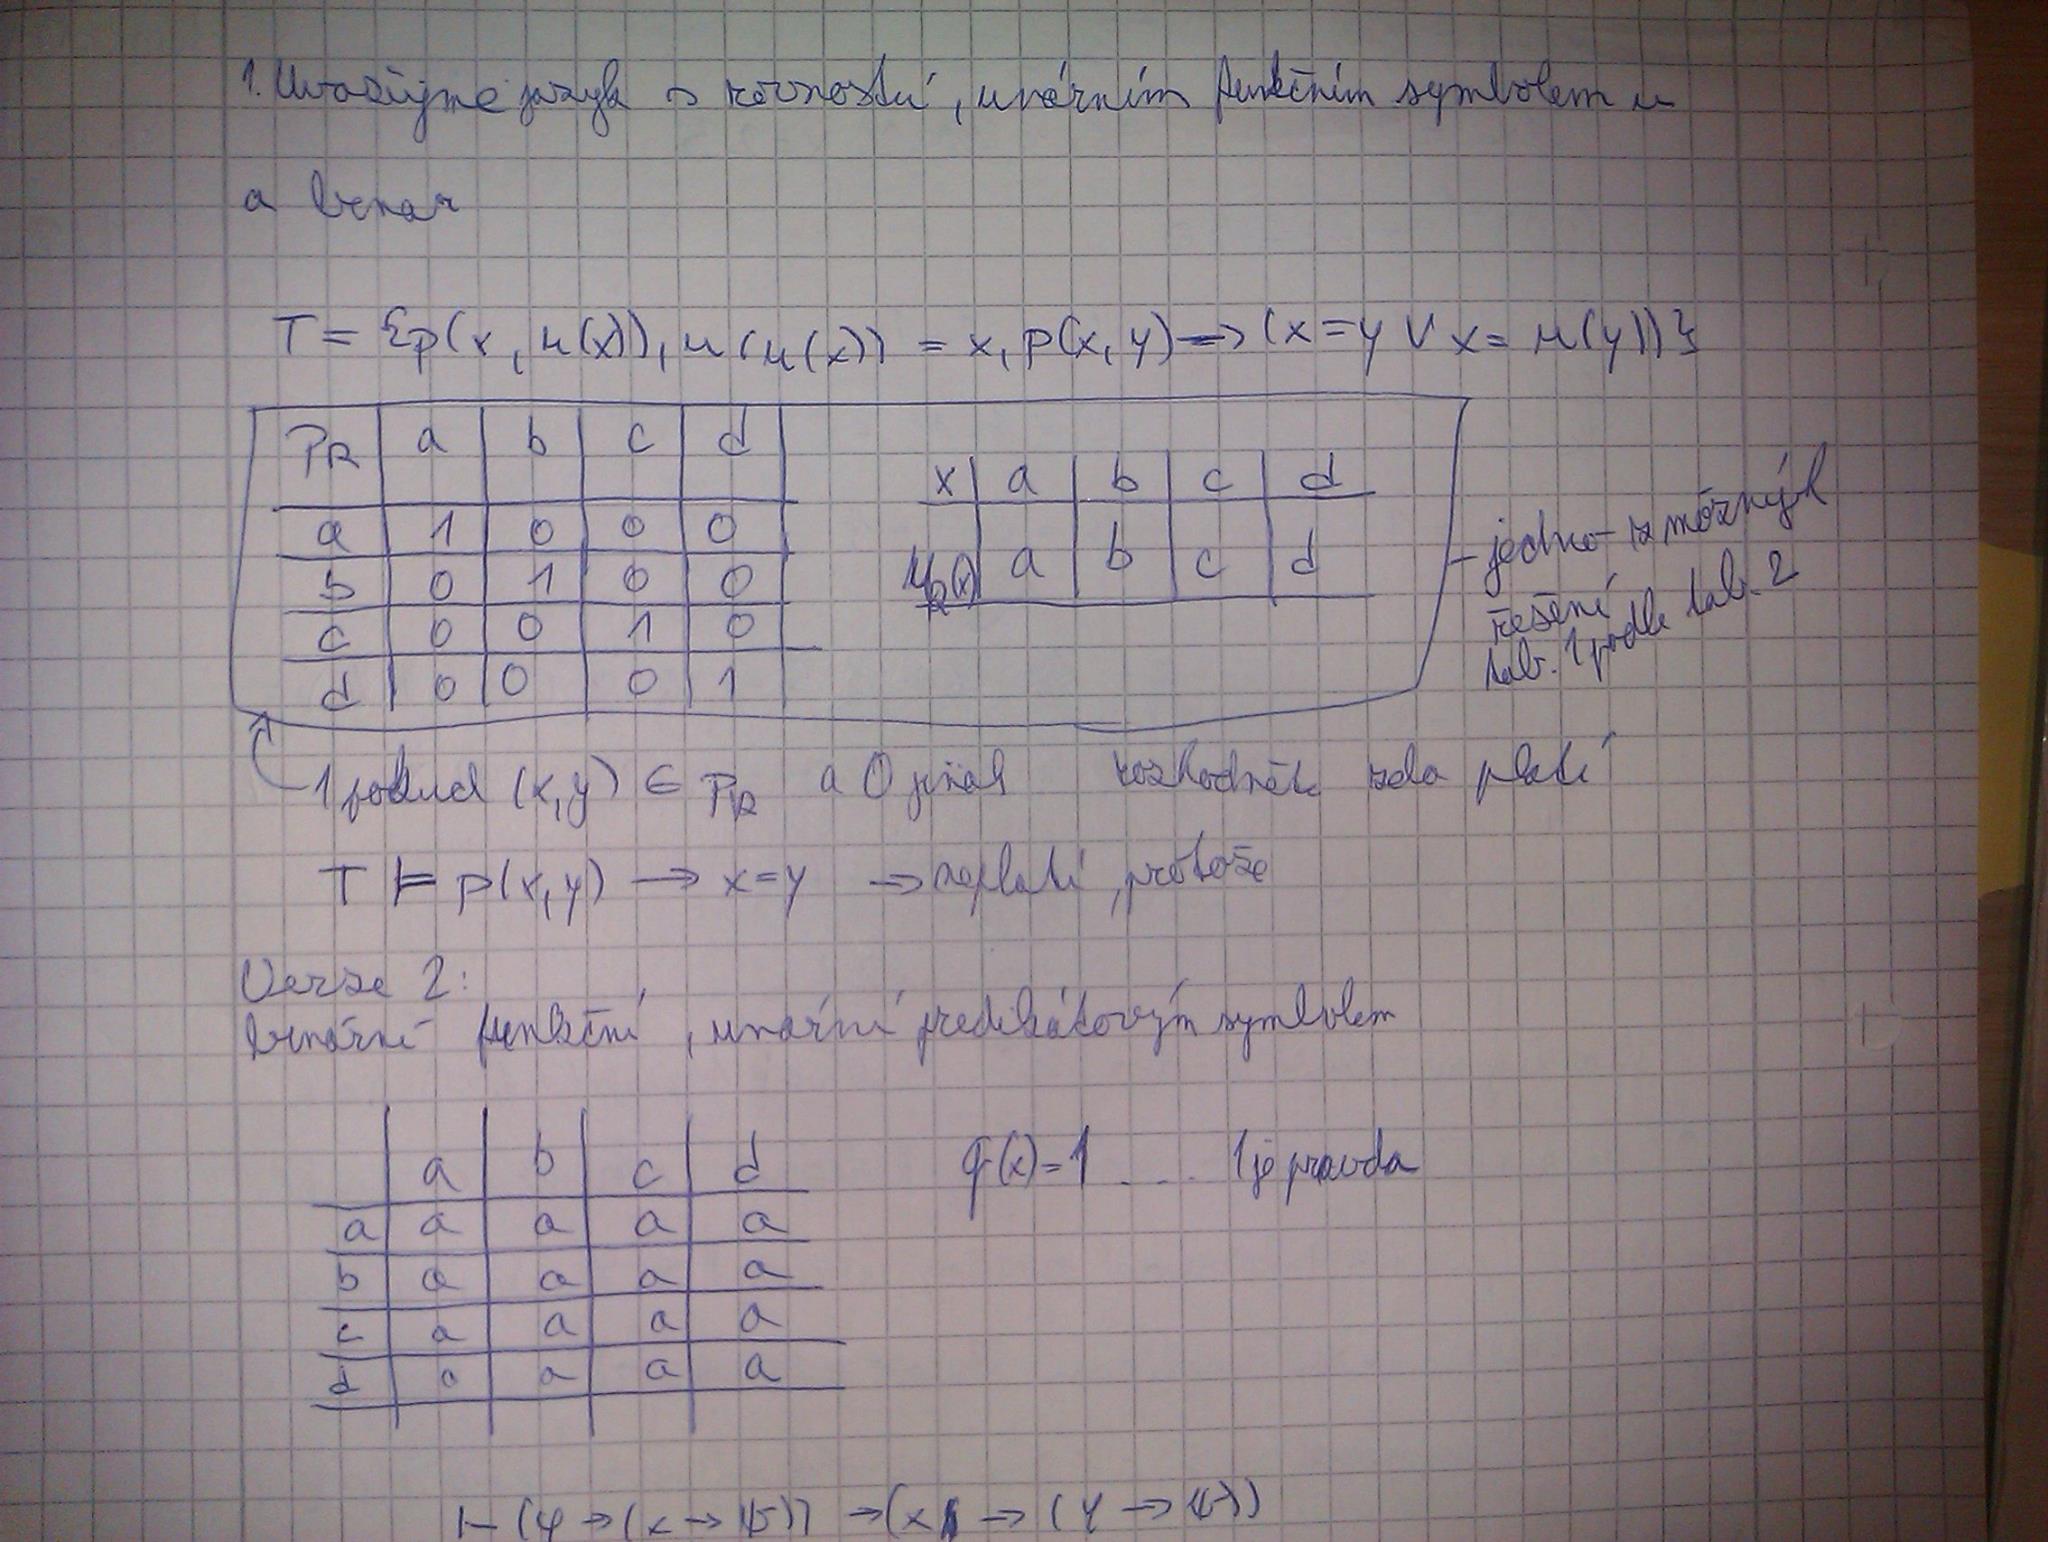 1. Uvažujme jazyk s rovností, unárním funkčním symbolem u
a binár
T = {p(x, u(x)), u(u(x)) = x, p(x, y) → (x = y ∨ x = u(y))}
PR a b c d
a 1 0 0 0
b 0 1 0 0
c 0 0 1 0
d 0 0 0 1
x a b c d
uR(x) a b c d
- jedno z možných
řešení
tab. 1 podle tab. 2
1 pokud (x, y) ∈ PR a 0 jinak rozhodněte zda platí
T ⊨ p(x, y) → x = y → neplatí, protože
Verze 2:
binární funkční, unární predikátovým symbolem
a b c d
a a a a a
b a a a a
c a a a a
d a a a a
q(x) = 1 .... 1 je pravda
⊢ (φ → (x → ψ)) → (x → (φ → ψ))